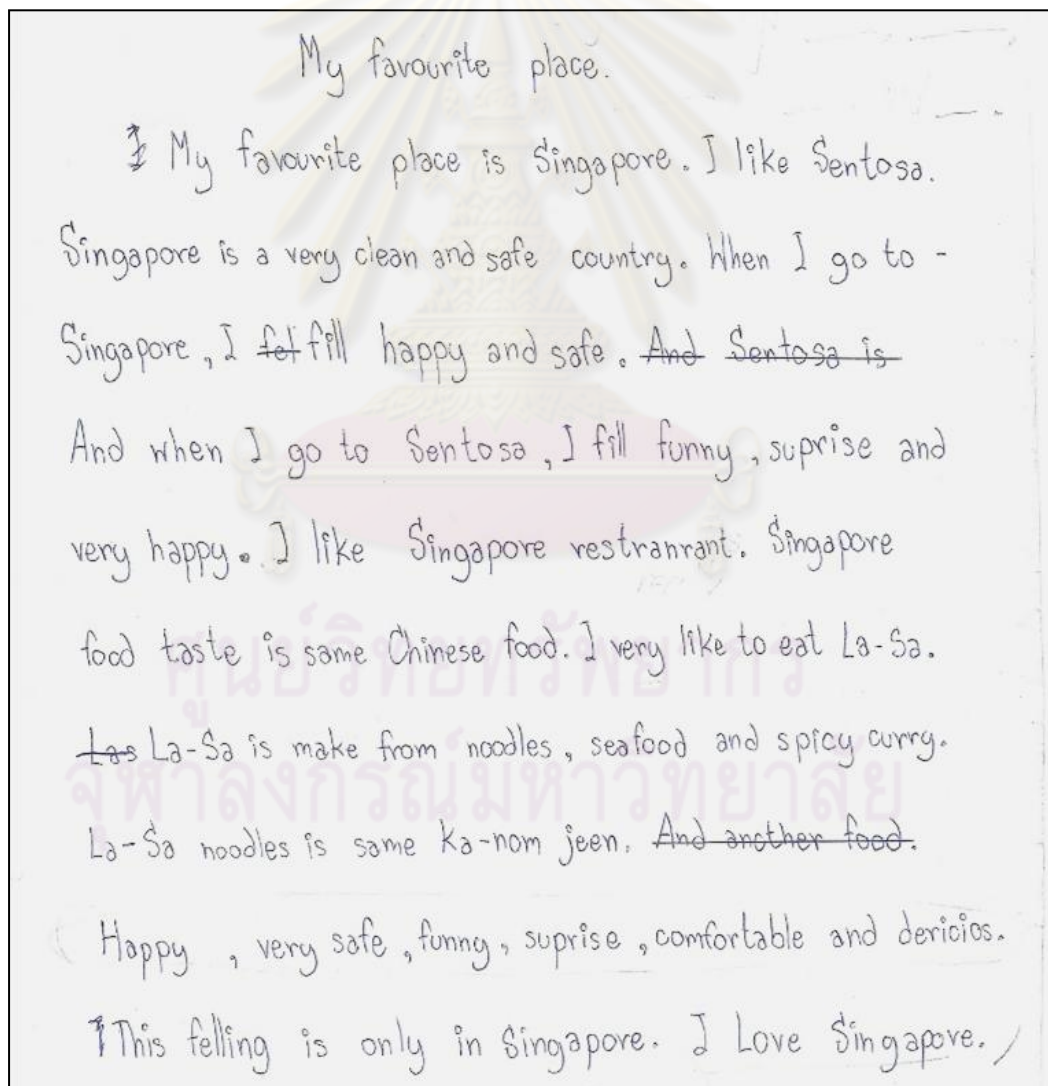 My favourite place.
My favourite place is Singapore. I like Sentosa.
Singapore is a very clean and safe country. When I go to -
Singapore, I fel fill happy and safe. And Sentosa is
And when I go to Sentosa, I fill funny, suprise and
very happy. I like Singapore restranrant. Singapore
food taste is same Chinese food. I very like to eat La-Sa.
Las La-Sa is make from noodles, seafood and spicy curry.
La-Sa noodles is same Ka-nom jeen. And another food.
Happy, very safe, funny, suprise, comfortable and dericios.
This felling is only in Singapore. I Love Singapore.
ศูนย์วิทยทรัพยากร
จุฬาลงกรณ์มหาวิทยาลัย